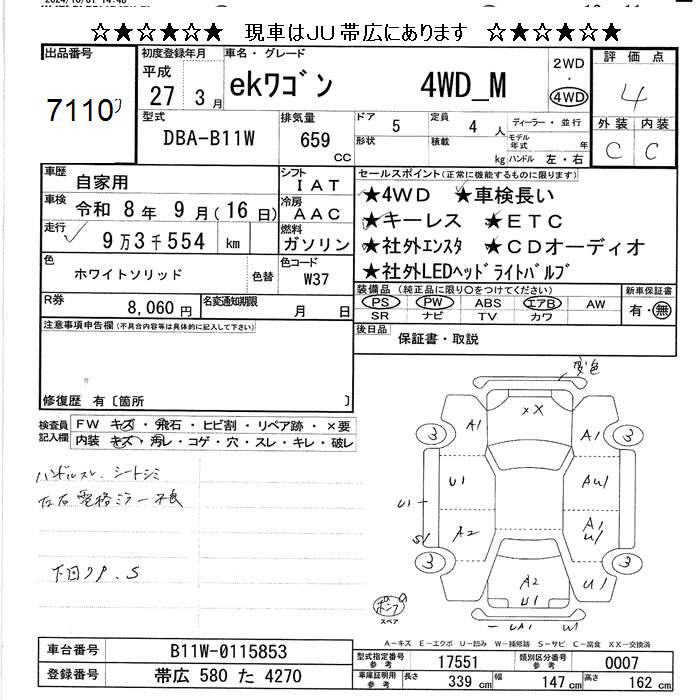 ☆★☆★☆★ 現車はJU帯広にあります ☆★☆★☆★
出品番号
7110
初度登録年月
平成
27 3月
車名・グレード
ekワゴン 4WD_M
2WD
・
4WD
評価点
4
型式
DBA-B11W
排気量
659
CC
ドア 5
定員 4 人
形状
積載
kg
ディーラー・並行
モデル年式 年
ハンドル 左・右
外装 内装
C C
車歴
自家用
シフト
IAT
車検 令和 8年 9月(16日)
冷房
AAC
走行
9万3千554 km
燃料
ガソリン
色
ホワイトソリッド
色替
色コード
W37
R券
8,060円
名変通知期限
月 日
セールスポイント(正常に機能するものに限ります)
★4WD ★車検長い
★キーレス ★ETC
★社外エンスタ ★CDオーディオ
★社外LEDヘッドライトバルブ
装備品(純正品に限り○をつけてください)
PS PW ABS エアB AW
SR ナビ TV カワ
新車保証書
有・無
後日品
保証書・取説
注意事項申告欄(不具合内容等は具体的に記入して下さい)
修復歴 有〔箇所 〕
検査員記入欄
FW キズ・飛石・ヒビ割・リペア跡・×要
内装 キズ・汚レ・コゲ・穴・スレ・キレ・破レ
ハンドルスレ シートシミ
左右電格ミラー不良
下回りP.S
変色
XX
3 A1 A1 3
U1 AU1
U1
S1 A2 A1 U1
3 3
A2 U1 U1
UA1 W1
スペア
A-キズ E-エクボ U-凹み W-補修跡 S-サビ C-腐食 XX-交換済
車台番号
B11W-0115853
登録番号
帯広 580 た 4270
型式指定番号 参考
17551
類別区分番号 参考
0007
車庫証明用 参考
長さ 339 cm 幅 147 cm 高さ 162 cm